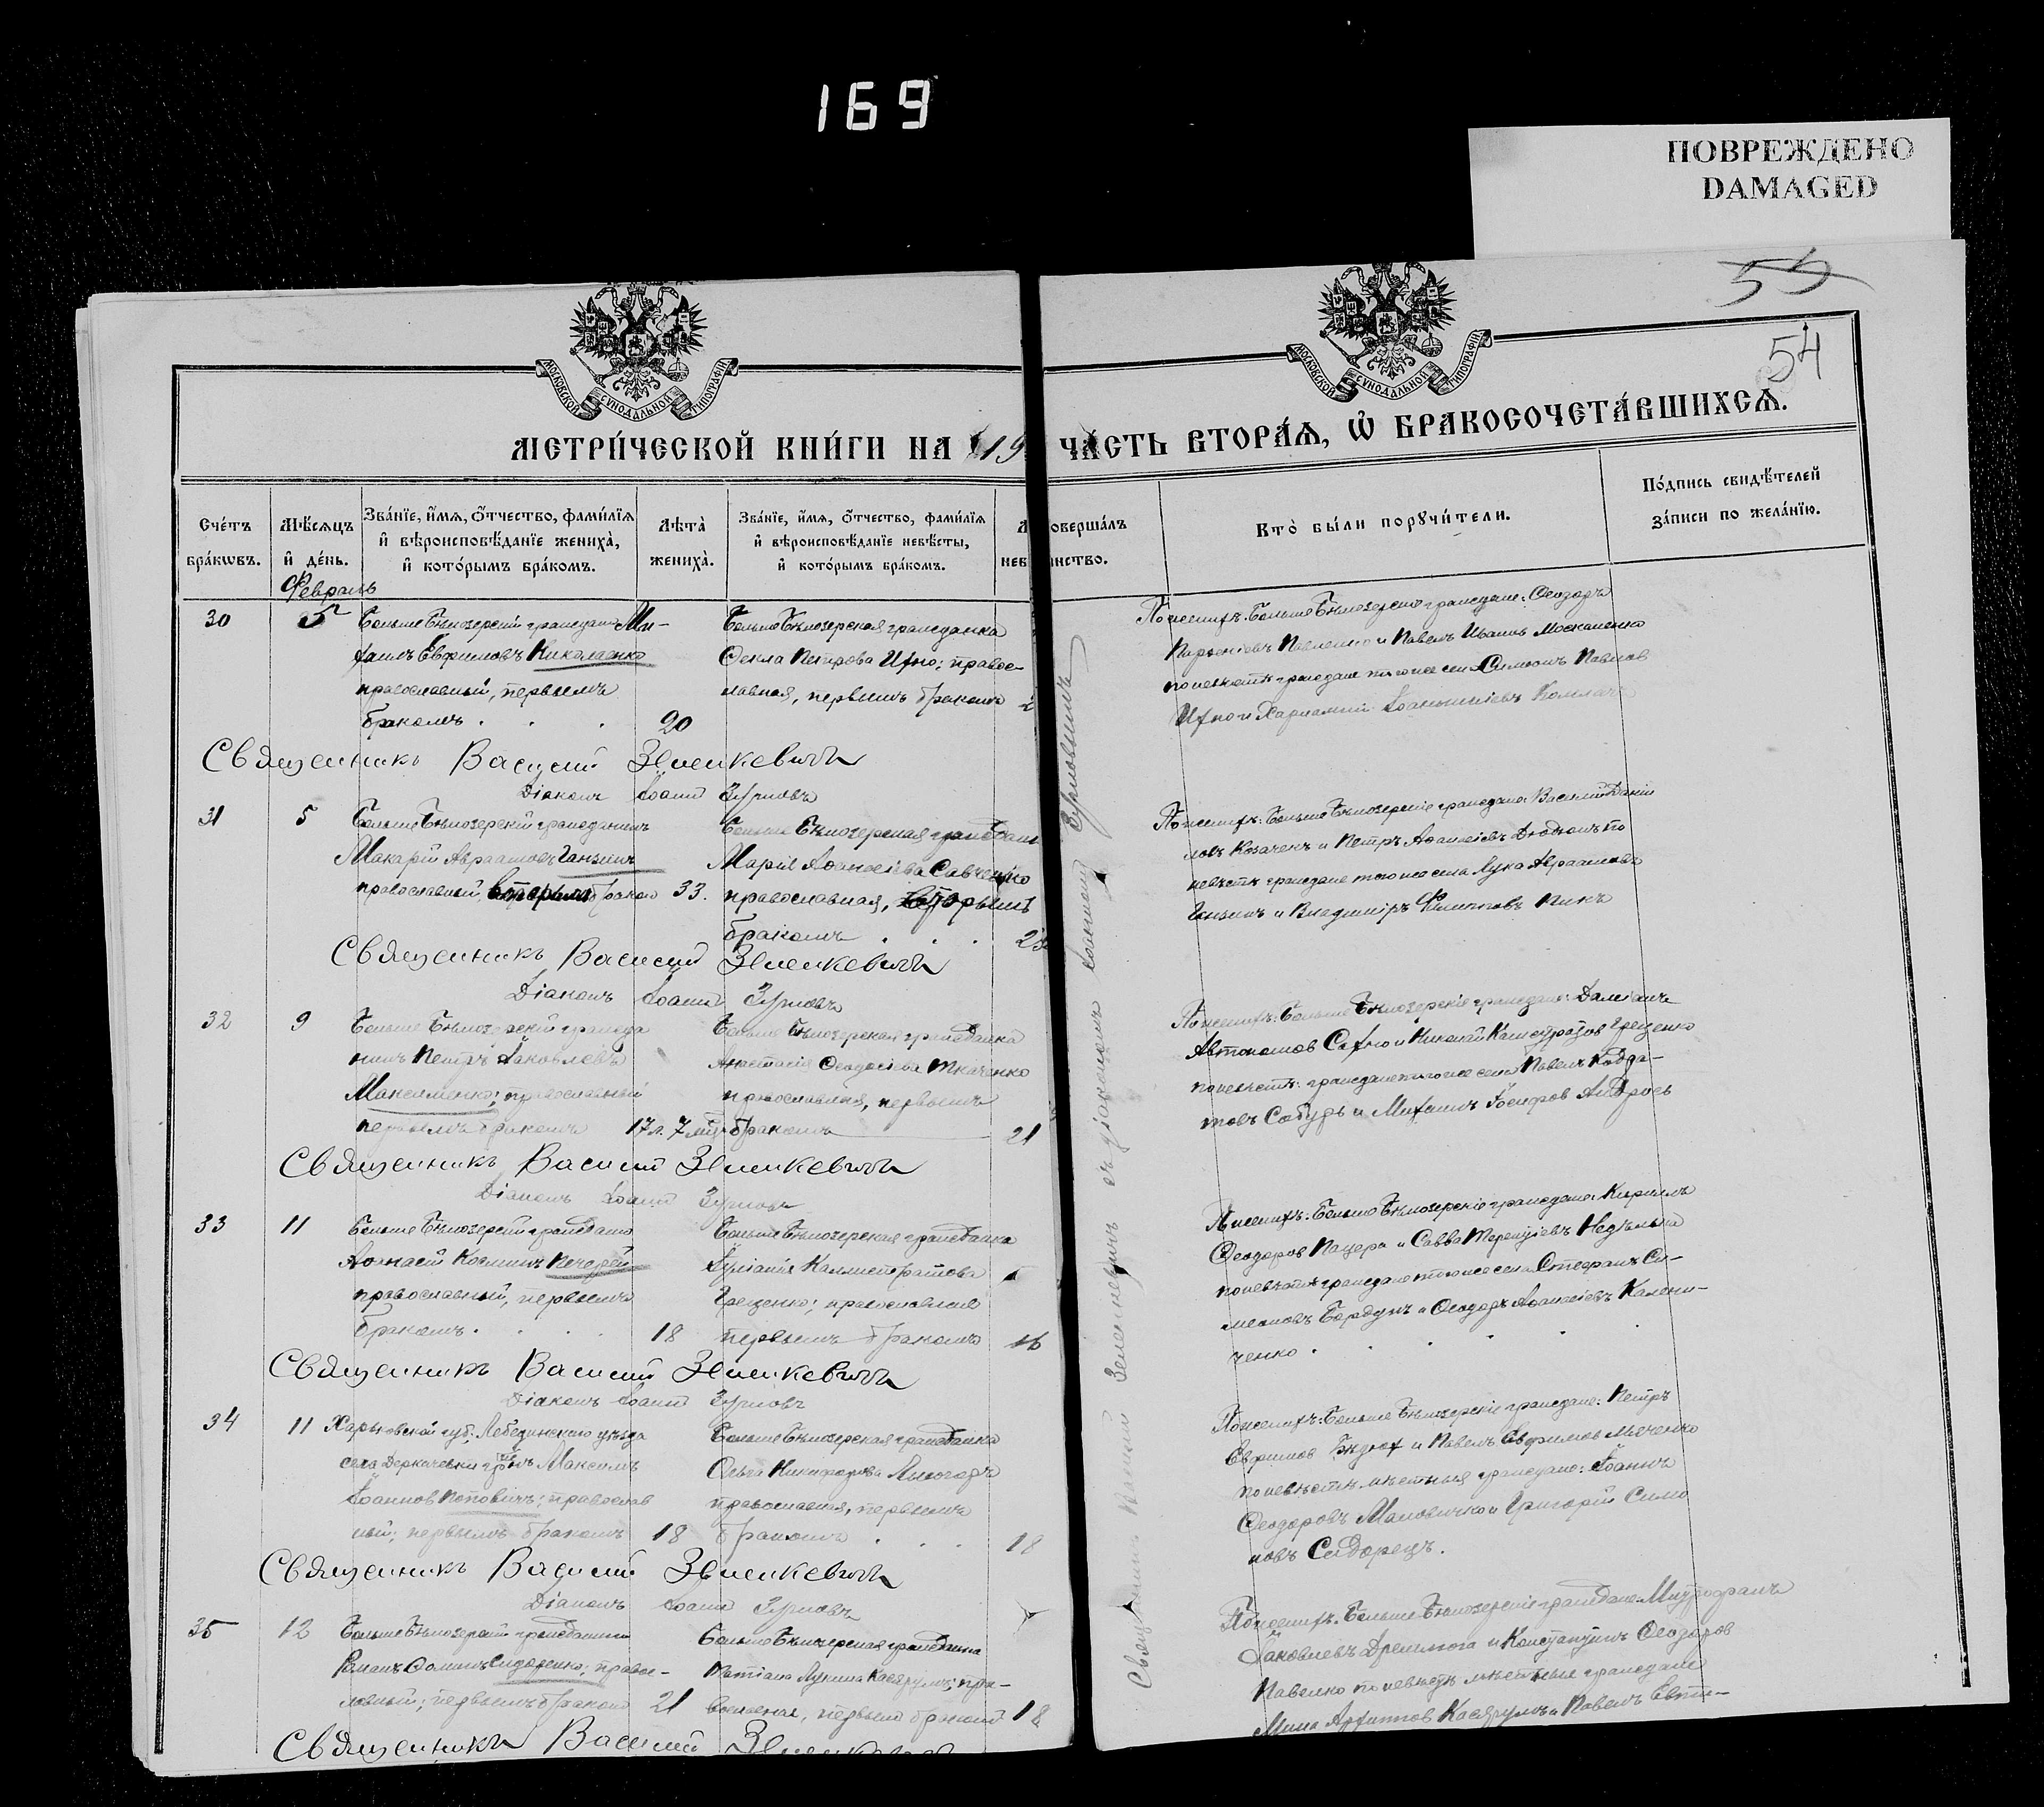 169
ПОВРЕЖДЕНО
DAMAGED
55
54
МОСКОВСКОЙ СѴНОДАЛЬНОЙ ТИПОГРАФІИ
МОСКОВСКОЙ СѴНОДАЛЬНОЙ ТИПОГРАФІИ
МЕТРИ́ЧЕСКОЙ КНИ́ГИ НА 19
ЧА́СТЬ ВТОРА́Ѧ, Ѽ БРАКОСОЧЕТА́ВШИХСѦ.
Сче́тъ бра́кѡвъ.
Мѣ́сѧцъ и҆ де́нь.
Зва́нїе, и҆́мѧ, ѻ҆́тчество, фами́лїѧ
и҆ вѣроисповѣ́данїе жениха̀,
и҆ кото́рымъ бра́комъ.
Лѣта̀ жениха̀.
Зва́нїе, и҆́мѧ, ѻ҆́тчество, фами́лїѧ
и҆ вѣроисповѣ́данїе невѣ́сты,
и҆ кото́рымъ бра́комъ.
Л
нев
оверша́лъ
инство.
Кто̀ бы́ли порꙋчи́тели.
По́дпись свидѣ́телей
за́писи по жела́нїю.
Февраль
30
5
Больше Бѣлозерскій гражданинъ Ми-
хаилъ Евфимовъ Николаенко
православный, первымъ
бракомъ . . .
20
Больше Бѣлозерская гражданка
Ѳекла Петрова Ихно; право-
славная, первымъ бракомъ
2
По женихѣ: Больше Бѣлозерскіе граждане: Ѳеодоръ
Парѳеніевъ Павленко и Павелъ Ивановъ Москаленко
по невѣстѣ граждане того же села Симеонъ Павлов
Ихно и Харлампій
Священникъ Василій Зеленкевичъ
Діаконъ Іоаннъ
31
5
Больше Бѣлозерскій гражданинъ
Макарій Авраамовъ Ганжинъ
православный вторымъ бракомъ
33.
Больше Бѣлозерская гражданка
Марія Аѳанасіева Савченко
православная, вторымъ
бракомъ . . .
2
По женихѣ: Больше Бѣлозерскіе граждане: Василій Даніи
ловъ Козаченъ и Петръ Аѳанасіевъ по
невѣстѣ граждане того же села Лука Авраамовъ
Ганжинъ и Владиміръ Филипповъ
Священникъ Василій Зеленкевичъ
Діаконъ Іоаннъ
32
9
Больше Бѣлозерскій гражда
нинъ Петръ Іаковлевъ
Максименко; православный
первымъ бракомъ
17 л. 7 мѣц
Больше Бѣлозерская гражданка
Анастасія Ѳеодосіева Ткаченко
православная, первымъ
бракомъ
21
По женихѣ: Больше Бѣлозерскіе граждане: Даміанъ
Автономов Сахно и Николай Каллистратов Грещенко
по невѣстѣ: граждане того же села Павелъ Кодра-
товъ Сабуръ и Михаилъ Іосифов Андрось
Священникъ Василій Зеленкевичъ
Діаконъ Іоаннъ
33
11
Больше Бѣлозерскій гражданинъ
Аѳанасій Косминъ Кечеджи
православный, первымъ
бракомъ . . .
18
Больше Бѣлозерская гражданка
Іуліанія Каллистратова
Грещенко; православная
первымъ бракомъ
16
По женихѣ: Больше Бѣлозерскіе граждане: Кириллъ
Ѳеодоров Пацера и Савва Терентіевъ Недѣлька
по невѣстѣ граждане того же села Стефанъ Си-
меоновъ Бардунъ и Ѳеодоръ Аѳанасіевъ Калени-
ченко . . . .
Священникъ Василій Зеленкевичъ
Діаконъ Іоаннъ
34
11
Харьковской губ. Лебединскаго уѣзда
села Деркачевки гр-нъ Максимъ
Іоаннов Поповичъ; православ
ный; первымъ бракомъ
18
Больше Бѣлозерская гражданка
Ольга Никифорова
православная, первымъ
бракомъ . . .
18
По женихѣ: Больше Бѣлозерскіе граждане: Петръ
Евфимов и Павелъ Евфимов
по невѣстѣ мѣстные граждане: Іоаннъ
Ѳеодоровъ Мановичко и Григорій Симо
новъ Сидорецъ.
Священникъ Василій Зеленкевичъ
Діаконъ Іоаннъ
35
12
Больше Бѣлозерскій гражданинъ
Романъ Ѳоминъ Сидоренко; право-
славный; первымъ бракомъ
21
Больше Бѣлозерская гражданка
Татіана Лукина Касярумъ; пра-
вославная, первымъ бракомъ
18
По женихѣ: Больше Бѣлозерскіе граждане Митрофанъ
Іаковлевъ Дремлюга и Константинъ Ѳеодоров
Павелко по невѣстѣ мѣстные граждане
Мина Архипов Касярумъ и Павелъ Евти-
Священникъ Василій Зеленкевичъ
Священникъ Василій Зеленкевичъ съ діакономъ Іоанномъ